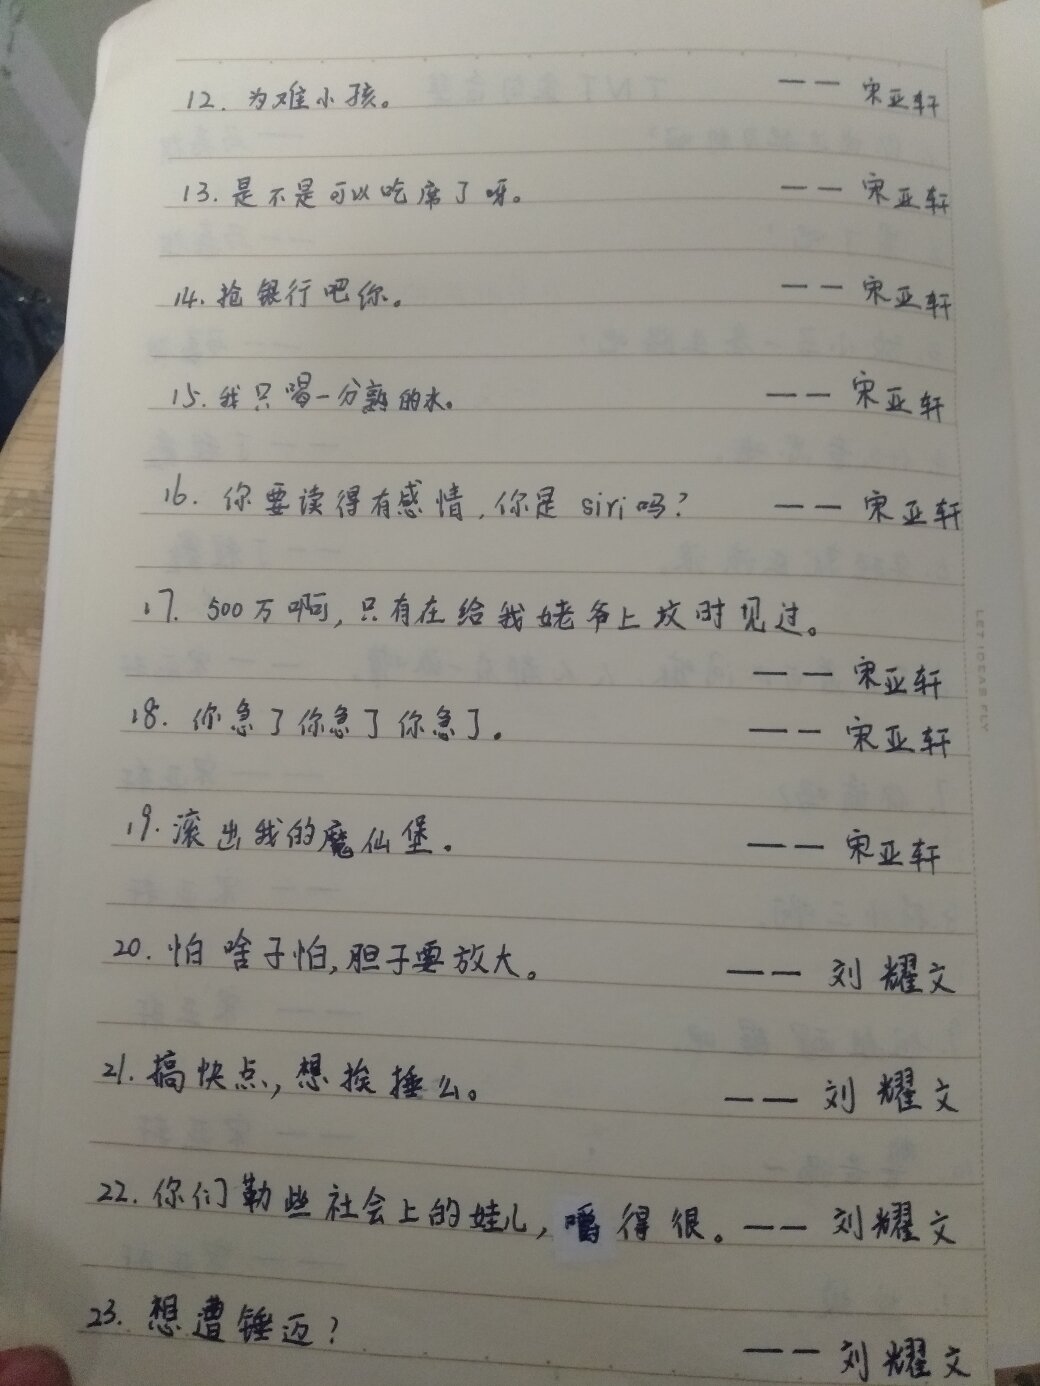 12. 为难小孩。 —— 宋亚轩
13. 是不是可以吃席了呀。 —— 宋亚轩
14. 抢银行吧你。 —— 宋亚轩
15. 我只喝一分熟的水。 —— 宋亚轩
16. 你要读得有感情,你是 siri 吗? —— 宋亚轩
17. 500万啊,只有在给我姥爷上坟时见过。
—— 宋亚轩
18. 你急了你急了你急了。 —— 宋亚轩
19. 滚出我的魔仙堡。 —— 宋亚轩
20. 怕啥子怕,胆子要放大。 —— 刘耀文
21. 搞快点,想挨捶么。 —— 刘耀文
22. 你们勒些社会上的娃儿,嚼得很。 —— 刘耀文
23. 想遭锤迈? —— 刘耀文
LET IDEAS FLY